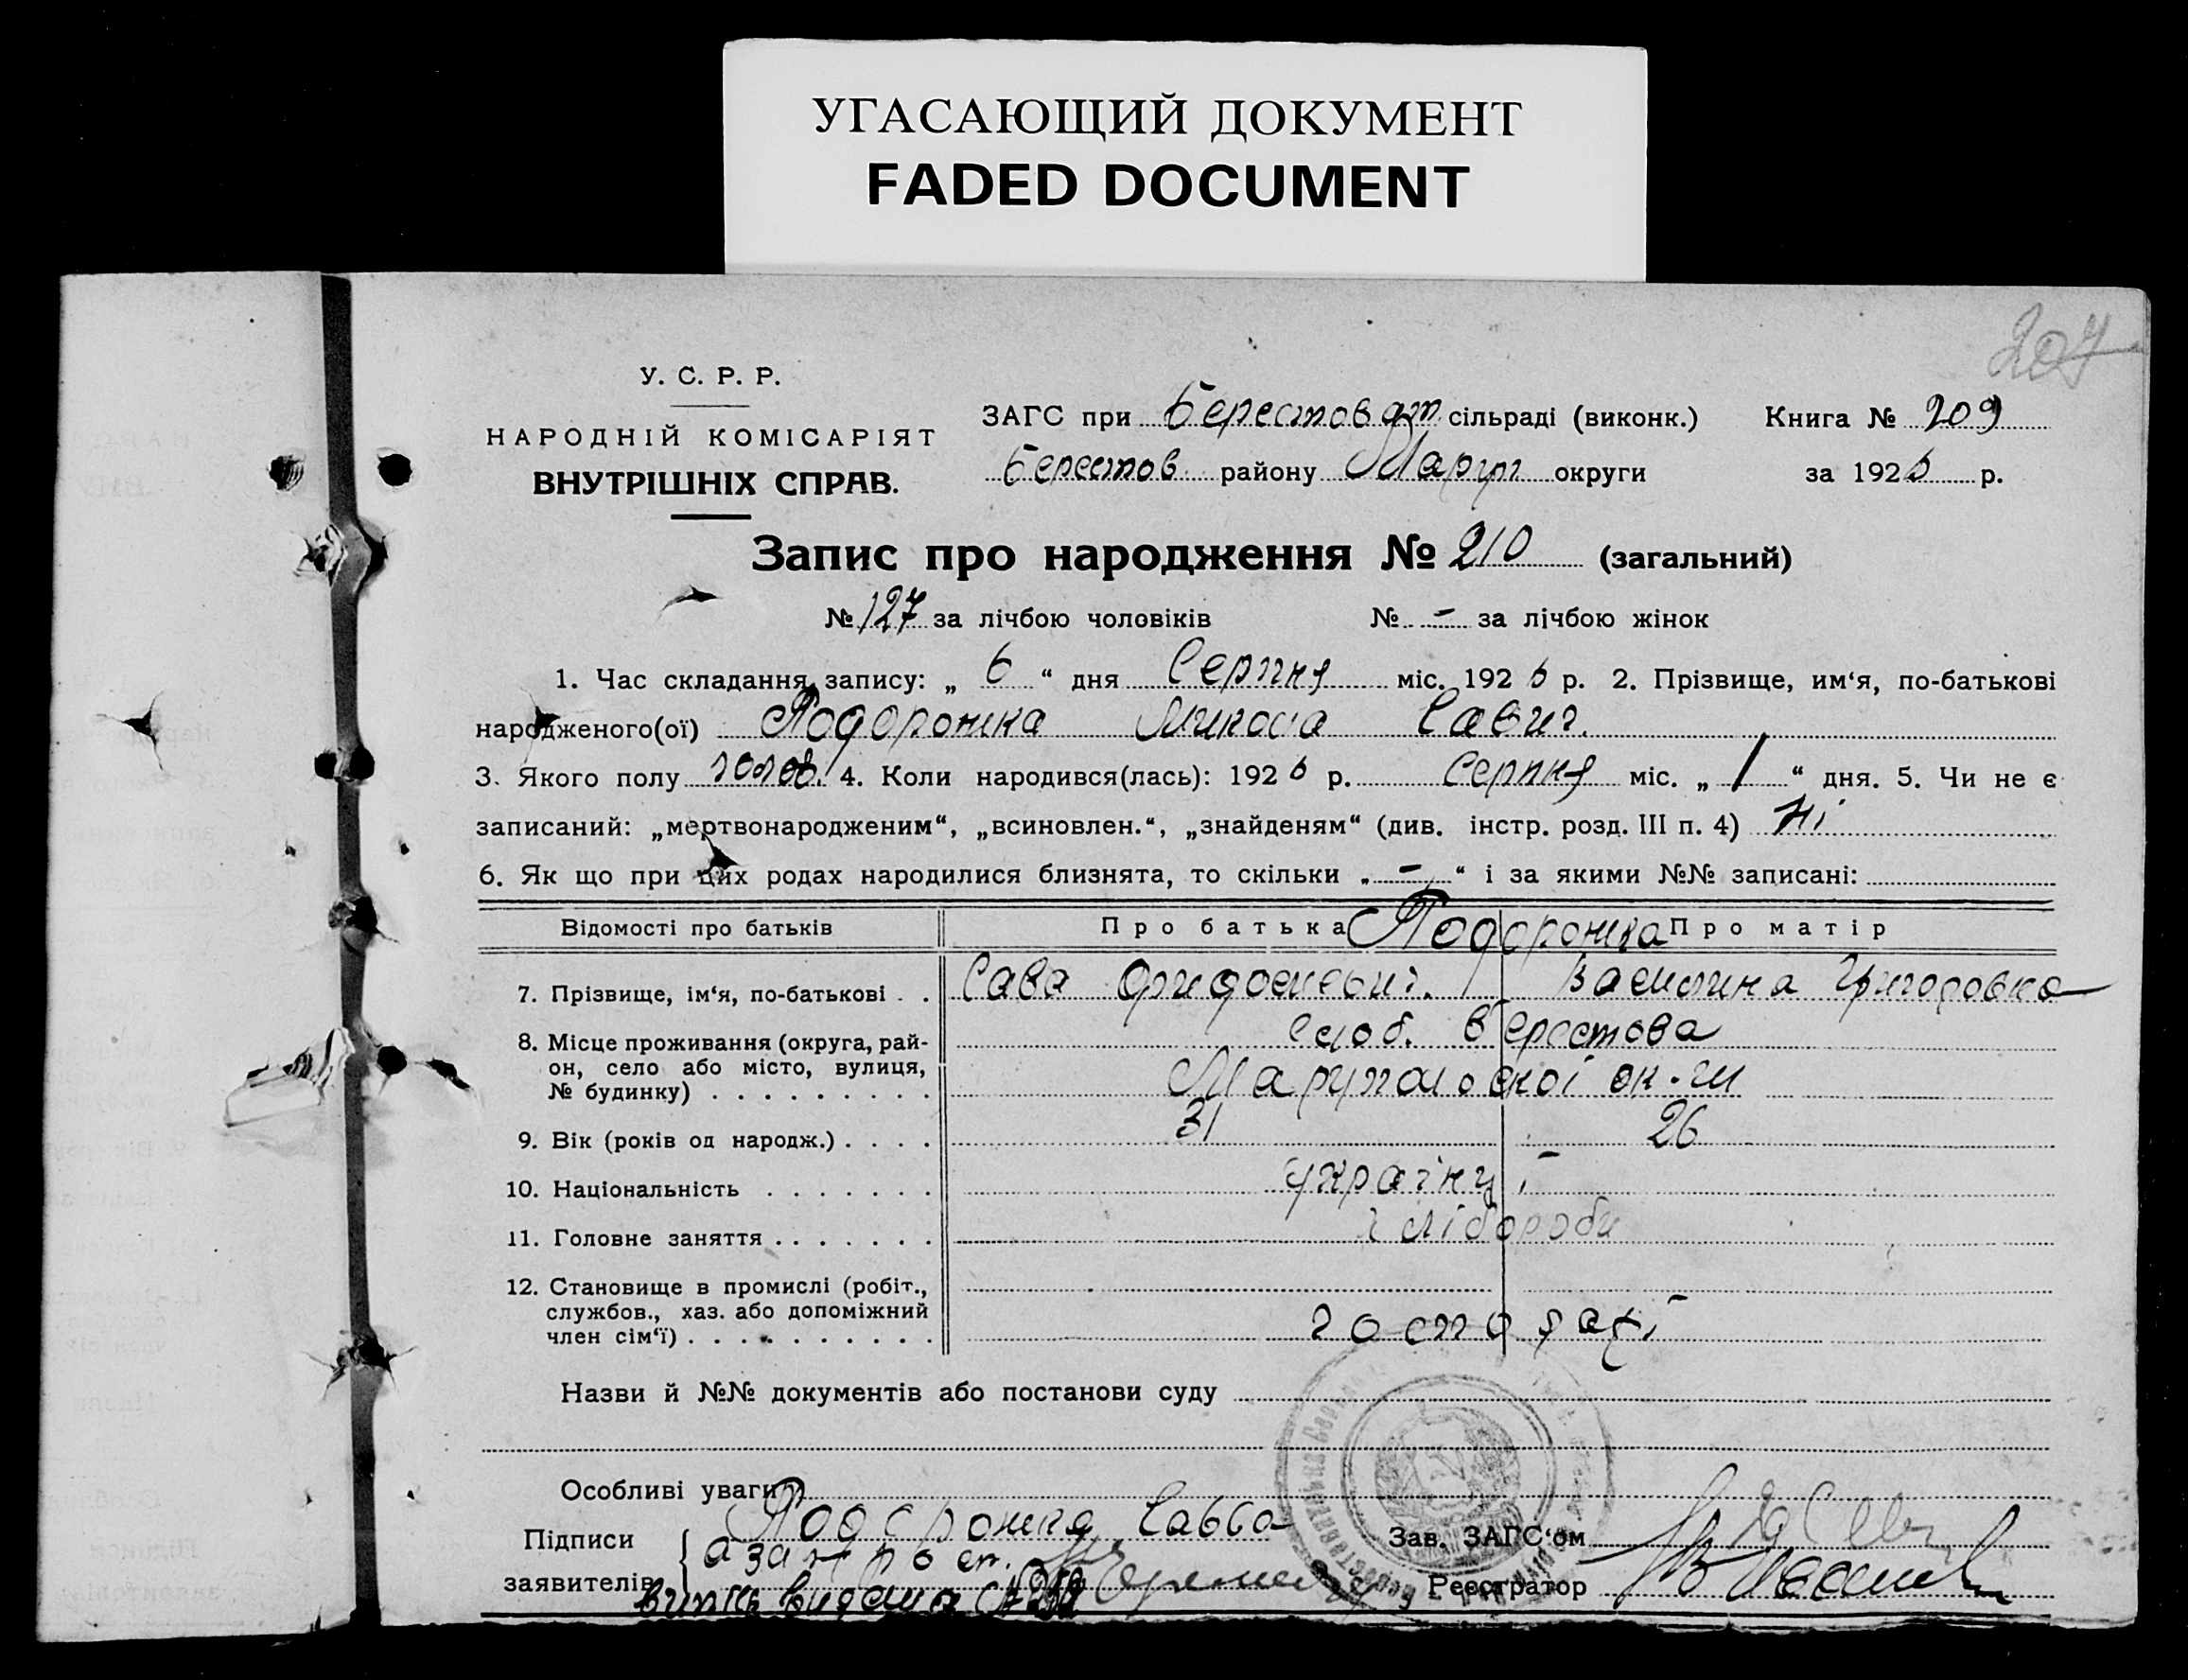 УГАСАЮЩИЙ ДОКУМЕНТ
FADED DOCUMENT
207
У. С. Р. Р.
НАРОДНІЙ КОМІСАРІЯТ
ВНУТРІШНІХ СПРАВ.
ЗАГС при Берестоват. сільраді (виконк.) Книга № 209
Берестов району Маріуп округи за 1926 р.
Запис про народження № 210 (загальний)
№ 127 за лічбою чоловіків № - за лічбою жінок
1. Час складання запису: „ 6 “ дня Серпня міс. 1926 р. 2. Прізвище, им‘я, по-батькові
народженого(ої) Подорожка Микола Савич.
3. Якого полу чолов. 4. Коли народився(лась): 1926 р. Серпня міс. „ 1 “ дня. 5. Чи не є
записаний: „мертвонародженим“, „всиновлен.“, „знайденям“ (див. інстр. розд. III п. 4) Ні
6. Як що при цих родах народилися близнята, то скільки „ - “ і за якими №№ записані:
Відомості про батьків Про батька Подорожка Про матір
7. Прізвище, ім‘я, по-батькові . . Сава Василина Григоровна
8. Місце проживання (округа, рай- слоб. Берестова
он, село або місто, вулиця, Марупольскої ок-ги
№ будинку) . . . . . . . . .
9. Вік (років од народж.) . . . . 31 26
10. Національність . . . . . . . українці
11. Головне заняття . . . . . . . хлібороби
12. Становище в промислі (робіт.,
службов., хаз. або допоміжний господарі
член сім‘ї) . . . . . . . . . .
Назви й №№ документів або постанови суду
Особливі уваги
Підписи Подорожка Савва Зав. ЗАГС‘ом
заявителів Реєстратор